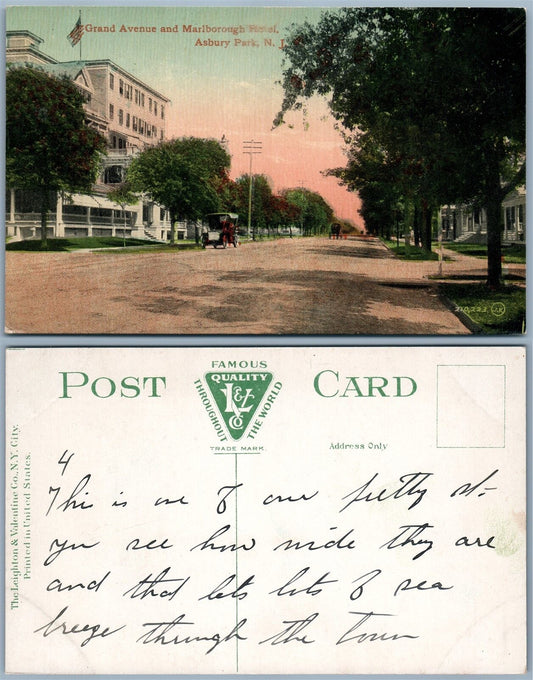 Grand Avenue and Marlborough Hotel,
Asbury Park, N. J.
210,223
FAMOUS
POST CARD
QUALITY
THROUGHOUT THE WORLD
L & V
Co
TRADE MARK.
Address Only
The Leighton & Valentine Co., N.Y. City.
Printed in United States.
4
This is one of our pretty st-
you see how wide they are
and that lets lots of sea
breeze through the town